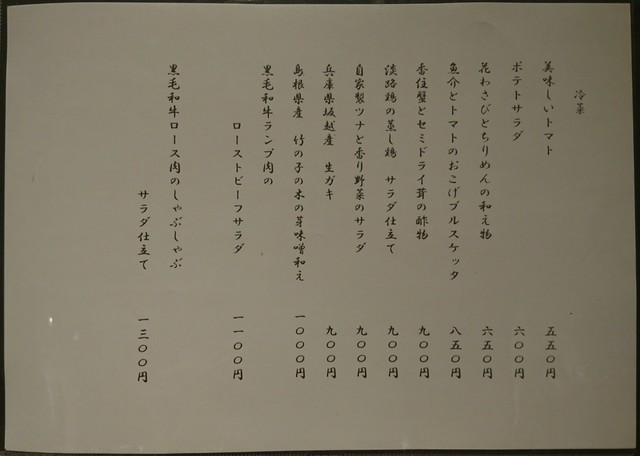 冷菜
美味しいトマト　五五〇円
ポテトサラダ　六〇〇円
花わさびとちりめんの和え物　六五〇円
魚介とトマトのおこげブルスケッタ　八五〇円
香住蟹とセミドライ茸の酢物　九〇〇円
淡路鶏の蒸し鶏　サラダ仕立て　九〇〇円
自家製ツナと香り野菜のサラダ　九〇〇円
兵庫県坂越産　生ガキ　九〇〇円
島根県産　竹の子の木の芽味噌和え　一〇〇〇円
黒毛和牛ランプ肉の
ローストビーフサラダ　一一〇〇円
黒毛和牛ロース肉のしゃぶしゃぶ
サラダ仕立て　一三〇〇円